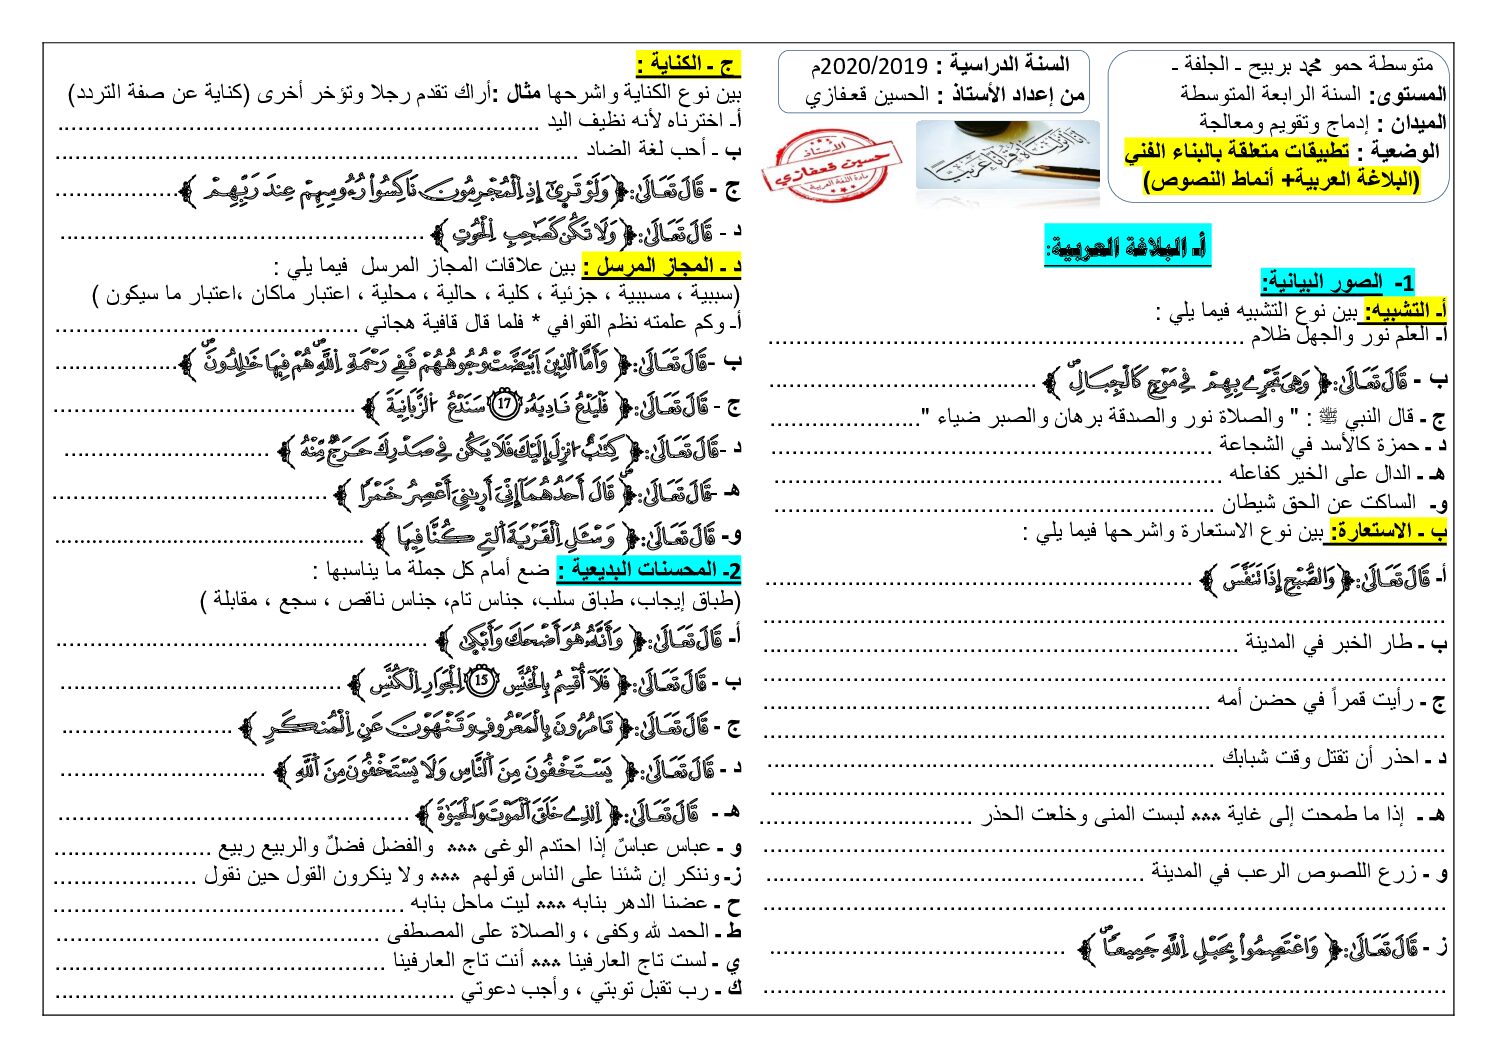 متوسطة حمو محمد بربيح ـ الجلفة ـ
المستوى: السنة الرابعة المتوسطة
الميدان : إدماج وتقويم ومعالجة
الوضعية : تطبيقات متعلقة بالبناء الفني
(البلاغة العربية+ أنماط النصوص)
السنة الدراسية : 2020/2019م
من إعداد الأستاذ : الحسين قعفازي
الأستاذ
حسين قعفازي
مادة اللغة العربية
أـ البلاغة العربية:
1- الصور البيانية:
أـ التشبيه: بين نوع التشبيه فيما يلي :
أـ العلم نور والجهل ظلام ......................................................................
ب - قَالَ تَعَالَىٰ:﴿ وَهِيَ تَجْرِے بِهِمْ فِے مَوْجٖ كَالْجِبَالِ ﴾ .......................................
ج - قال النبي ﷺ : " والصلاة نور والصدقة برهان والصبر ضياء "......................
د ـ حمزة كالأسد في الشجاعة ................................................................
هـ ـ الدال على الخير كفاعله .................................................................
وـ الساكت عن الحق شيطان ................................................................
ب ـ الاستعارة: بين نوع الاستعارة واشرحها فيما يلي :
أ- قَالَ تَعَالَىٰ:﴿ وَالصُّبْحِ إِذَا تَنَفَّسَ ﴾ ..............................................................
....................................................................................................
ب ـ طار الخبر في المدينة .....................................................................
....................................................................................................
ج ـ رأيت قمراً في حضن أمه .................................................................
....................................................................................................
د ـ احذر أن تقتل وقت شبابك .................................................................
....................................................................................................
هـ ـ إذا ما طمحت إلى غاية *** لبست المنى وخلعت الحذر ...............................
....................................................................................................
و ـ زرع اللصوص الرعب في المدينة .......................................................
....................................................................................................
ز - قَالَ تَعَالَىٰ:﴿ وَاعْتَصِمُواْ بِحَبْلِ اِ۬للَّهِ جَمِيعاٗ ﴾ ...........................................
....................................................................................................
ج ـ الكناية :
بين نوع الكناية واشرحها مثال :أراك تقدم رجلا وتؤخر أخرى (كناية عن صفة التردد)
أـ اخترناه لأنه نظيف اليد ......................................................................
ب ـ أحب لغة الضاد ............................................................................
ج - قَالَ تَعَالَىٰ:﴿ وَلَوْ تَر۪ىٰٓ إِذِ اِ۬لْمُجْرِمُونَ نَاكِسُواْ رُءُوسِهِمْ عِندَ رَبِّهِمْ ﴾..................
د - قَالَ تَعَالَىٰ:﴿ وَلَا تَكُن كَصَٰحِبِ اِ۬لْحُوتِ ﴾ .....................................................
د ـ المجاز المرسل : بين علاقات المجاز المرسل فيما يلي :
(سببية ، مسببية ، جزئية ، كلية ، حالية ، محلية ، اعتبار ماكان ،اعتبار ما سيكون )
أـ وكم علمته نظم القوافي * فلما قال قافية هجاني ............................................
ب -قَالَ تَعَالَىٰ:﴿ وَأَمَّا اَ۬لذِينَ اَ۪بْيَضَّتْ وُجُوهُهُمْ فَفِے رَحْمَةِ اِ۬للَّهِ هُمْ فِيهَا خَٰلِدُونَ ﴾..................
ج - قَالَ تَعَالَىٰ:﴿ فَلْيَدْعُ نَادِيَهُۥ 17 سَنَدْعُ اُ۬لزَّبَانِيَةَ ﴾ ............................................
د -قَالَ تَعَالَىٰ:﴿ كِتَٰبٌ ا۟نزِلَ إِلَيْكَ فَلَا يَكُن فِے صَدْرِكَ حَرَجٞ مِّنْهُ ﴾ ..............................
هـ -قَالَ تَعَالَىٰ:﴿ قَالَ أَحَدُهُمَآ إِنِّيَ أَر۪ىٰنِيَ أَعْصِرُ خَمْراٗ ﴾ ........................................
و- قَالَ تَعَالَىٰ:﴿ وَسْـَٔلِ اِ۬لْقَرْيَةَ اَ۬لتِے كُنَّا فِيهَا ﴾ .............................................
2- المحسنات البديعية : ضع أمام كل جملة ما يناسبها :
(طباق إيجاب، طباق سلب، جناس تام، جناس ناقص ، سجع ، مقابلة )
أ- قَالَ تَعَالَىٰ:﴿ وَأَنَّهُۥ هُوَ أَضْحَكَ وَأَبْك۪ىٰ ﴾ ......................................................
ب - قَالَ تَعَالَىٰ:﴿ فَلَآ أُقْسِمُ بِالْخُنَّسِ 15 اِ۬لْجَوَارِ اِ۬لْكُنَّسِ ﴾ .........................................
ج - قَالَ تَعَالَىٰ:﴿ تَامُرُونَ بِالْمَعْرُوفِ وَتَنْهَوْنَ عَنِ اِ۬لْمُنكَرِ ﴾ .........................
د - قَالَ تَعَالَىٰ:﴿ يَسْتَخْفُونَ مِنَ اَ۬لنَّاسِ وَلَا يَسْتَخْفُونَ مِنَ اَ۬للَّهِ ﴾ ..............................
هـ - قَالَ تَعَالَىٰ:﴿ اِ۬لذِے خَلَقَ اَ۬لْمَوْتَ وَالْحَيَوٰةَ ﴾ ...................................................
و ـ عباس عباسٌ إذا احتدم الوغى *** والفضل فضلٌ والربيع ربيع .......................
زـ وننكر إن شئنا على الناس قولهم *** ولا ينكرون القول حين نقول .....................
ح ـ عضنا الدهر بنابه *** ليت ماحل بنابه ...................................................
ط ـ الحمد لله وكفى ، والصلاة على المصطفى ...............................................
ي ـ لست تاج العارفينا *** أنت تاج العارفينا ................................................
ك ـ رب تقبل توبتي ، وأجب دعوتي ..........................................................